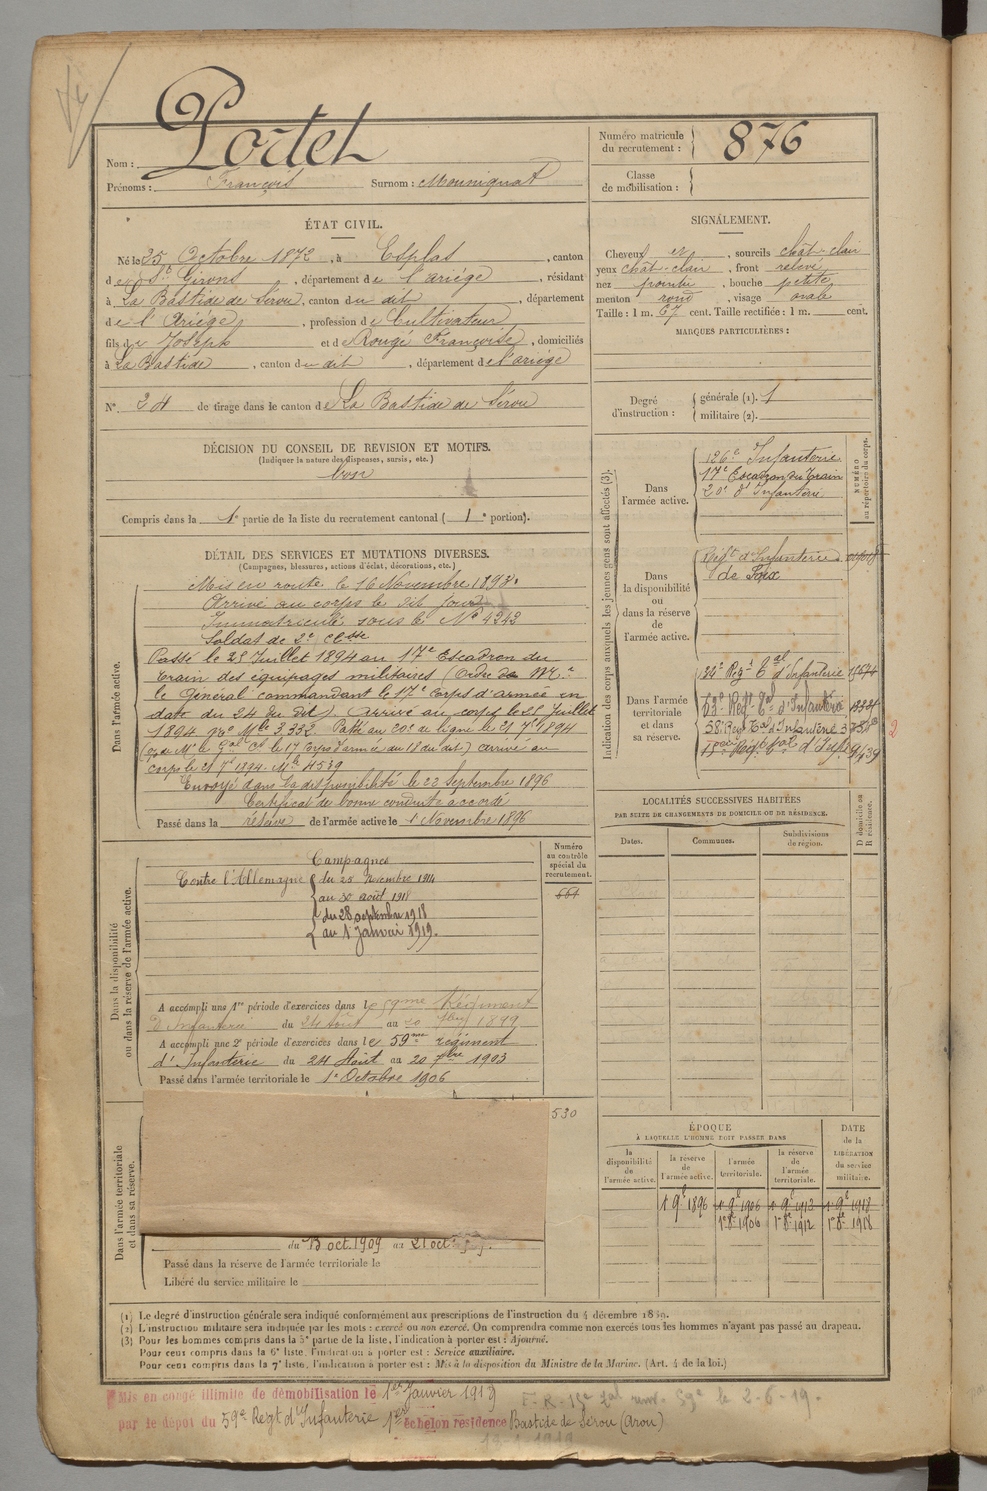 Nom : Portet
Prénoms : François Surnom : Mounignat
Numéro matricule du recrutement : 876
Classe de mobilisation :
ÉTAT CIVIL.
Né le 25 Octobre 1872, à Esplas, canton
de St Girons, département de l'ariège, résidant
à La Bastide de Sérou, canton du dit, département
de l'Ariège, profession de Cultivateur
fils de Joseph et de Rouge Françoise, domiciliés
à La Bastide, canton du dit, département de l'ariège
N° 24 de tirage dans le canton de La Bastide de Sérou
SIGNALEMENT.
Cheveux et, sourcils chât-clair
yeux chât-clair, front relevé
nez pointu, bouche petite
menton rond, visage ovale
Taille : 1 m. 67 cent. Taille rectifiée : 1 m. cent.
MARQUES PARTICULIÈRES :
Degré d'instruction : générale (1). 1
militaire (2).
DÉCISION DU CONSEIL DE REVISION ET MOTIFS.
(Indiquer la nature des dispenses, sursis, etc.)
bon
Compris dans la 1e partie de la liste du recrutement cantonal (1e portion).
DÉTAIL DES SERVICES ET MUTATIONS DIVERSES.
(Campagnes, blessures, actions d'éclat, décorations, etc.)
Dans l'armée active.
Mis en route le 16 Novembre 1893.
Arrivé au corps le dit jour
Immatriculé sous le N° 4243
Soldat de 2e Classe
Passé le 25 Juillet 1894 au 17e Escadron du
train des équipages militaires (Ordre de Mr
le Général commandant le 17e Corps d'armée en
date du 24 du dit). Arrivé au corps le 25 Juillet
1894 No Mle 3332. Passé au 20e de ligne le 21 7bre 1894
arrivé au
corps le 21 7bre 1894. Mle 4539
Envoyé dans la disponibilité le 22 Septembre 1896
Certificat de bonne conduite accordé
Passé dans la réserve de l'armée active le 1 Novembre 1896
Indication des corps auxquels les jeunes gens sont affectés (3).
NUMÉRO au répertoire du corps.
Dans l'armée active.
126e Infanterie
17e Escadron du Train
20e d'Infanterie
Dans la disponibilité ou dans la réserve de l'armée active.
Régt d'Infanterie
de Foix
Dans l'armée territoriale et dans sa réserve.
132e Régt tal d'Infanterie
53e Régt Tal d'Infanterie
58 Reg Tal d'Infanterie
2
Dans la disponibilité ou dans la réserve de l'armée active.
Numéro au contrôle spécial du recrutement.
661
Campagne
Contre l'Allemagne du 25 Novembre 1914
au 30 août 1918
du 28 septembre 1918
au 1 Janvier 1919.
A accompli une 1re période d'exercices dans le 59me Régiment
D'Infanterie du 24 Août au 20 7bre 1899
A accompli une 2e période d'exercices dans le 59me régiment
d'Infanterie du 24 Août au 20 7bre 1903
Passé dans l'armée territoriale le 1e Octobre 1906
LOCALITÉS SUCCESSIVES HABITÉES
PAR SUITE DE CHANGEMENTS DE DOMICILE OU DE RÉSIDENCE.
Dates. Communes. Subdivisions de région. D domicile ou R résidence.
Dans l'armée territoriale et dans sa réserve.
530
du 13 oct. 1909 au 21 oct.
Passé dans la réserve de l'armée territoriale le
Libéré du service militaire le
ÉPOQUE
À LAQUELLE L'HOMME DOIT PASSER DANS
la disponibilité de l'armée active. la réserve de l'armée active. l'armée territoriale. la réserve de l'armée territoriale. DATE de la LIBÉRATION du service militaire.
1 9b 1896 1 9b 1906 1 9b 1912 1 9b 1918
1 8e 1906 1 8e 1912 1 8e 1918
(1) Le degré d'instruction générale sera indiqué conformément aux prescriptions de l'instruction du 4 décembre 1889.
(2) L'instruction militaire sera indiquée par les mots : exercé ou non exercé. On comprendra comme non exercés tous les hommes n'ayant pas passé au drapeau.
(3) Pour les hommes compris dans la 5e partie de la liste, l'indication à porter est : Ajourné.
Pour ceux compris dans la 6e liste, l'indication à porter est : Service auxiliaire.
Pour ceux compris dans la 7e liste, l'indication à porter est : Mis à la disposition du Ministre de la Marine. (Art. 4 de la loi.)
Mis en congé illimité de démobilisation le 1er Janvier 1919
par le dépôt du 59e Régt d'Infanterie 1er échelon résidence Bastide de Sérou (Arou)
59e le 2-6-19.